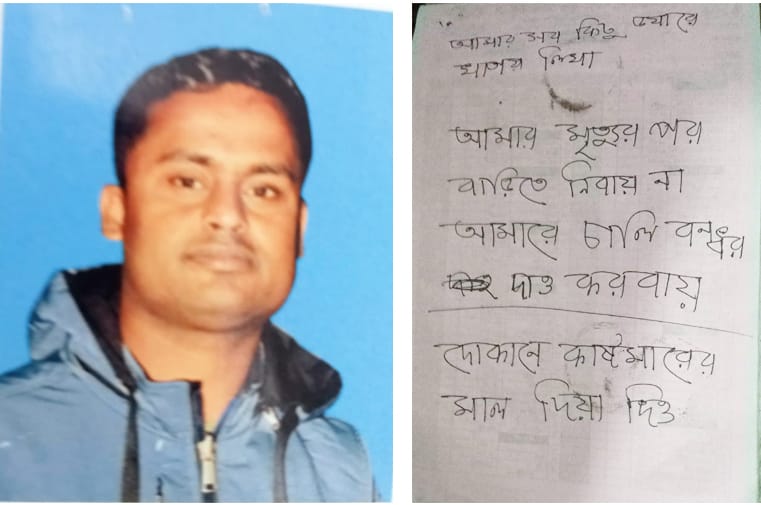 আমার সব কিছু
মাপয় লিমা
আমার মৃত্যুর পর
বারিতে নিবায় না
আমারে চালি বনধর
দাও করবায়
দোকানে কাষ্টমারের
মাল দিয়া দিও